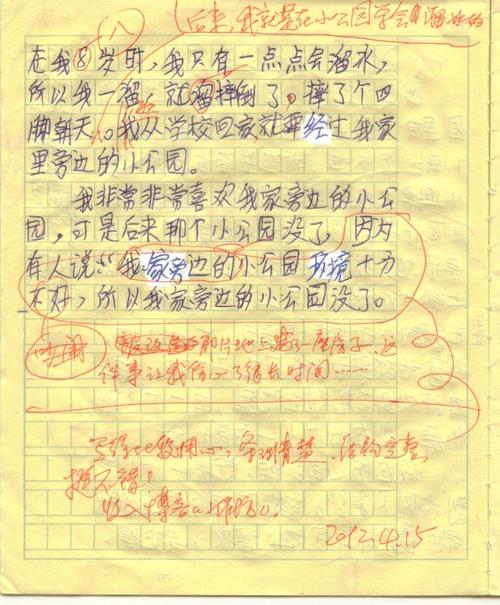 后来,我就是在小公园学会溜冰的
八
在我8岁时,我只有一点点会溜冰,
所以我一溜,就溜摔倒了。摔了个四
脚朝天。我从学校回家就要经过我家
里旁边的小公园。
我非常非常喜欢我家旁边的小公
园,可是后来那个小公园没了,因为
有人说“我家旁边的小公园环境十分
不好,所以我家旁边的小公园没了。
那片地上建了一座房子,这
件事让我伤心了很长时间……
写得比较用心,条理清楚,结构完整,
挺不错!
收入博客
2012.4.15